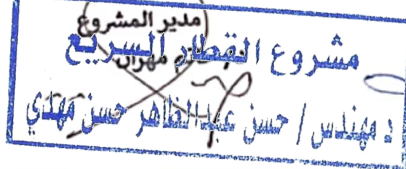 مدير المشروع
مشروع القطار السريع
مهران
د مهندس / حسن عبدالظاهر حسن مهدي